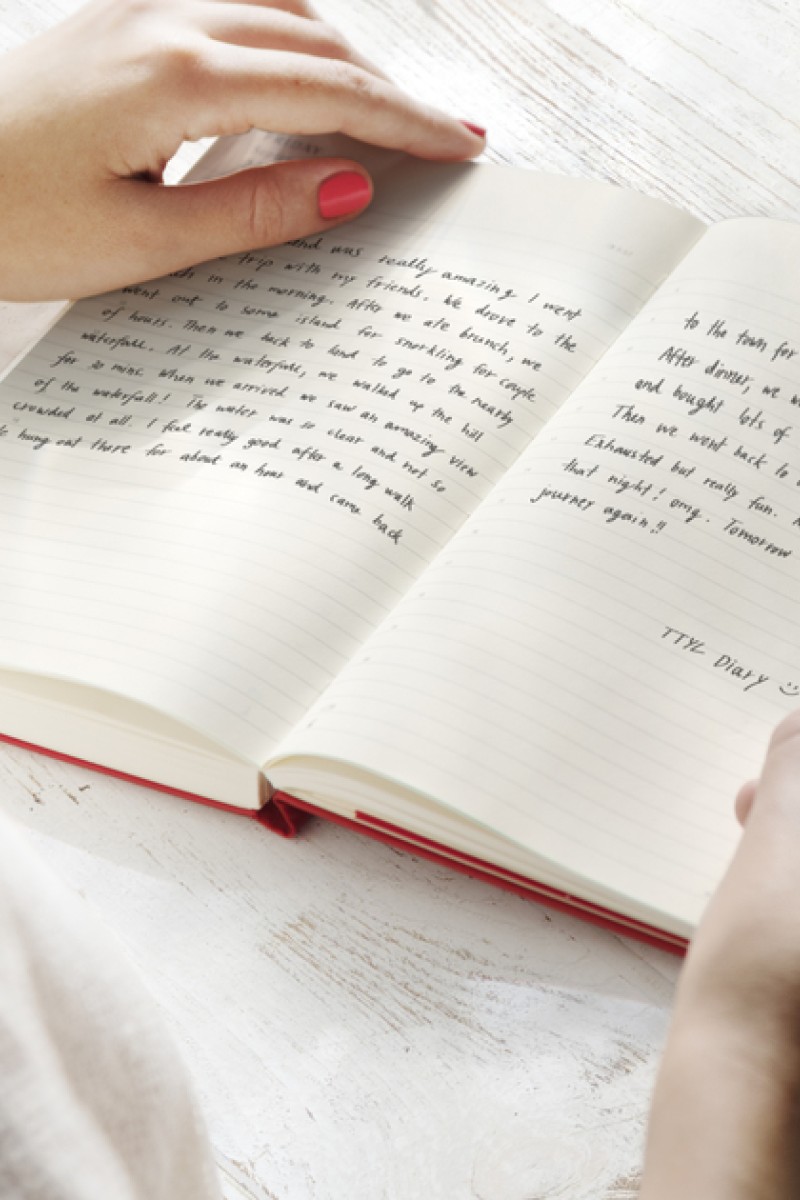 and was really amazing! I went
trip with my friends. We drove to the
in the morning. After we ate brunch, we
went out to some island for snorkling for couple
of hours. Then we back to land to go to the nearby
waterfall. At the waterfall, we walked up the hill
for 30 mins. When we arrived we saw an amazing view
of the waterfall! The water was so clear and not so
crowded at all. I feel really good after a long walk
hung out there for about an hour and came back
to the town for
After dinner, we
and bought lots of
Then we went back to
Exhausted but really fun.
that night! omg. Tomorrow
journey again!!
TTYL Diary :)